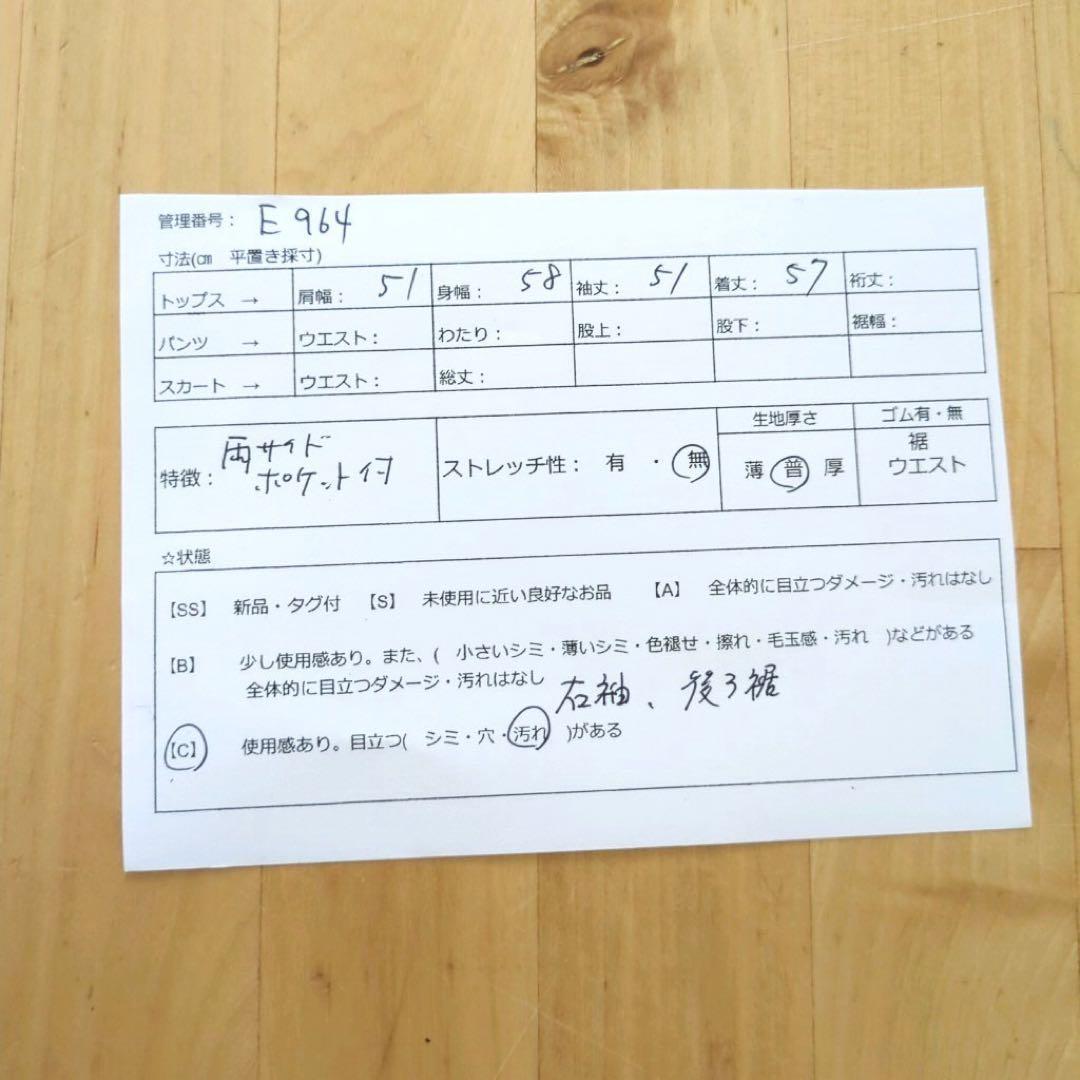 管理番号： E964
寸法(㎝　平置き採寸)
トップス　→　肩幅： 51　身幅： 58　袖丈： 51　着丈： 57　裄丈：
パンツ　→　ウエスト：　わたり：　股上：　股下：　裾幅：
スカート　→　ウエスト：　総丈：
生地厚さ　ゴム有・無
特徴： 両サイド
ポケット付
ストレッチ性：　有　・　無
薄　普　厚
裾
ウエスト
☆状態
【SS】　新品・タグ付　【S】　未使用に近い良好なお品　【A】　全体的に目立つダメージ・汚れはなし
【B】　少し使用感あり。また、(　小さいシミ・薄いシミ・色褪せ・擦れ・毛玉感・汚れ　)などがある
全体的に目立つダメージ・汚れはなし
右袖、後ろ裾
【C】　使用感あり。目立つ(　シミ・穴・汚れ　)がある